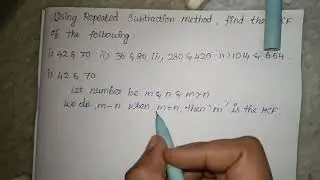 Using Repeated Subtraction method, find the HCF
of the following:
i) 42 & 70 ii) 36 & 80 iii) 280 & 420 iv) 1014 & 654.
i) 42 & 70
Let number be m & n & m>n
We do, m-n when, m=n, then 'm' is the HCF.